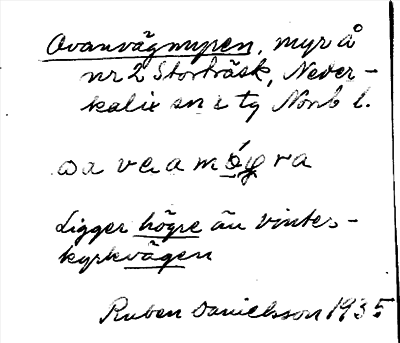 Ovanvägmyren, myr å
nr 2 Storträsk, Neder-
kalix sn o tg Norrb l.
Ligger högre än vinter-
kyrkvägen
Ruben Danielsson 1935